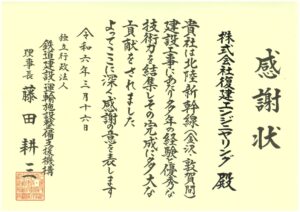 感謝状
株式会社復建エンジニヤリング 殿
貴社は北陸新幹線(金沢、敦賀間)
建設工事にあたり多年の経験と優秀な
技術力を結集しその完成に多大な
貢献をされました
よってここに深く感謝の意を表します
令和六年三月十六日
独立行政法人
鉄道建設・運輸施設整備支援機構
理事長 藤田耕三